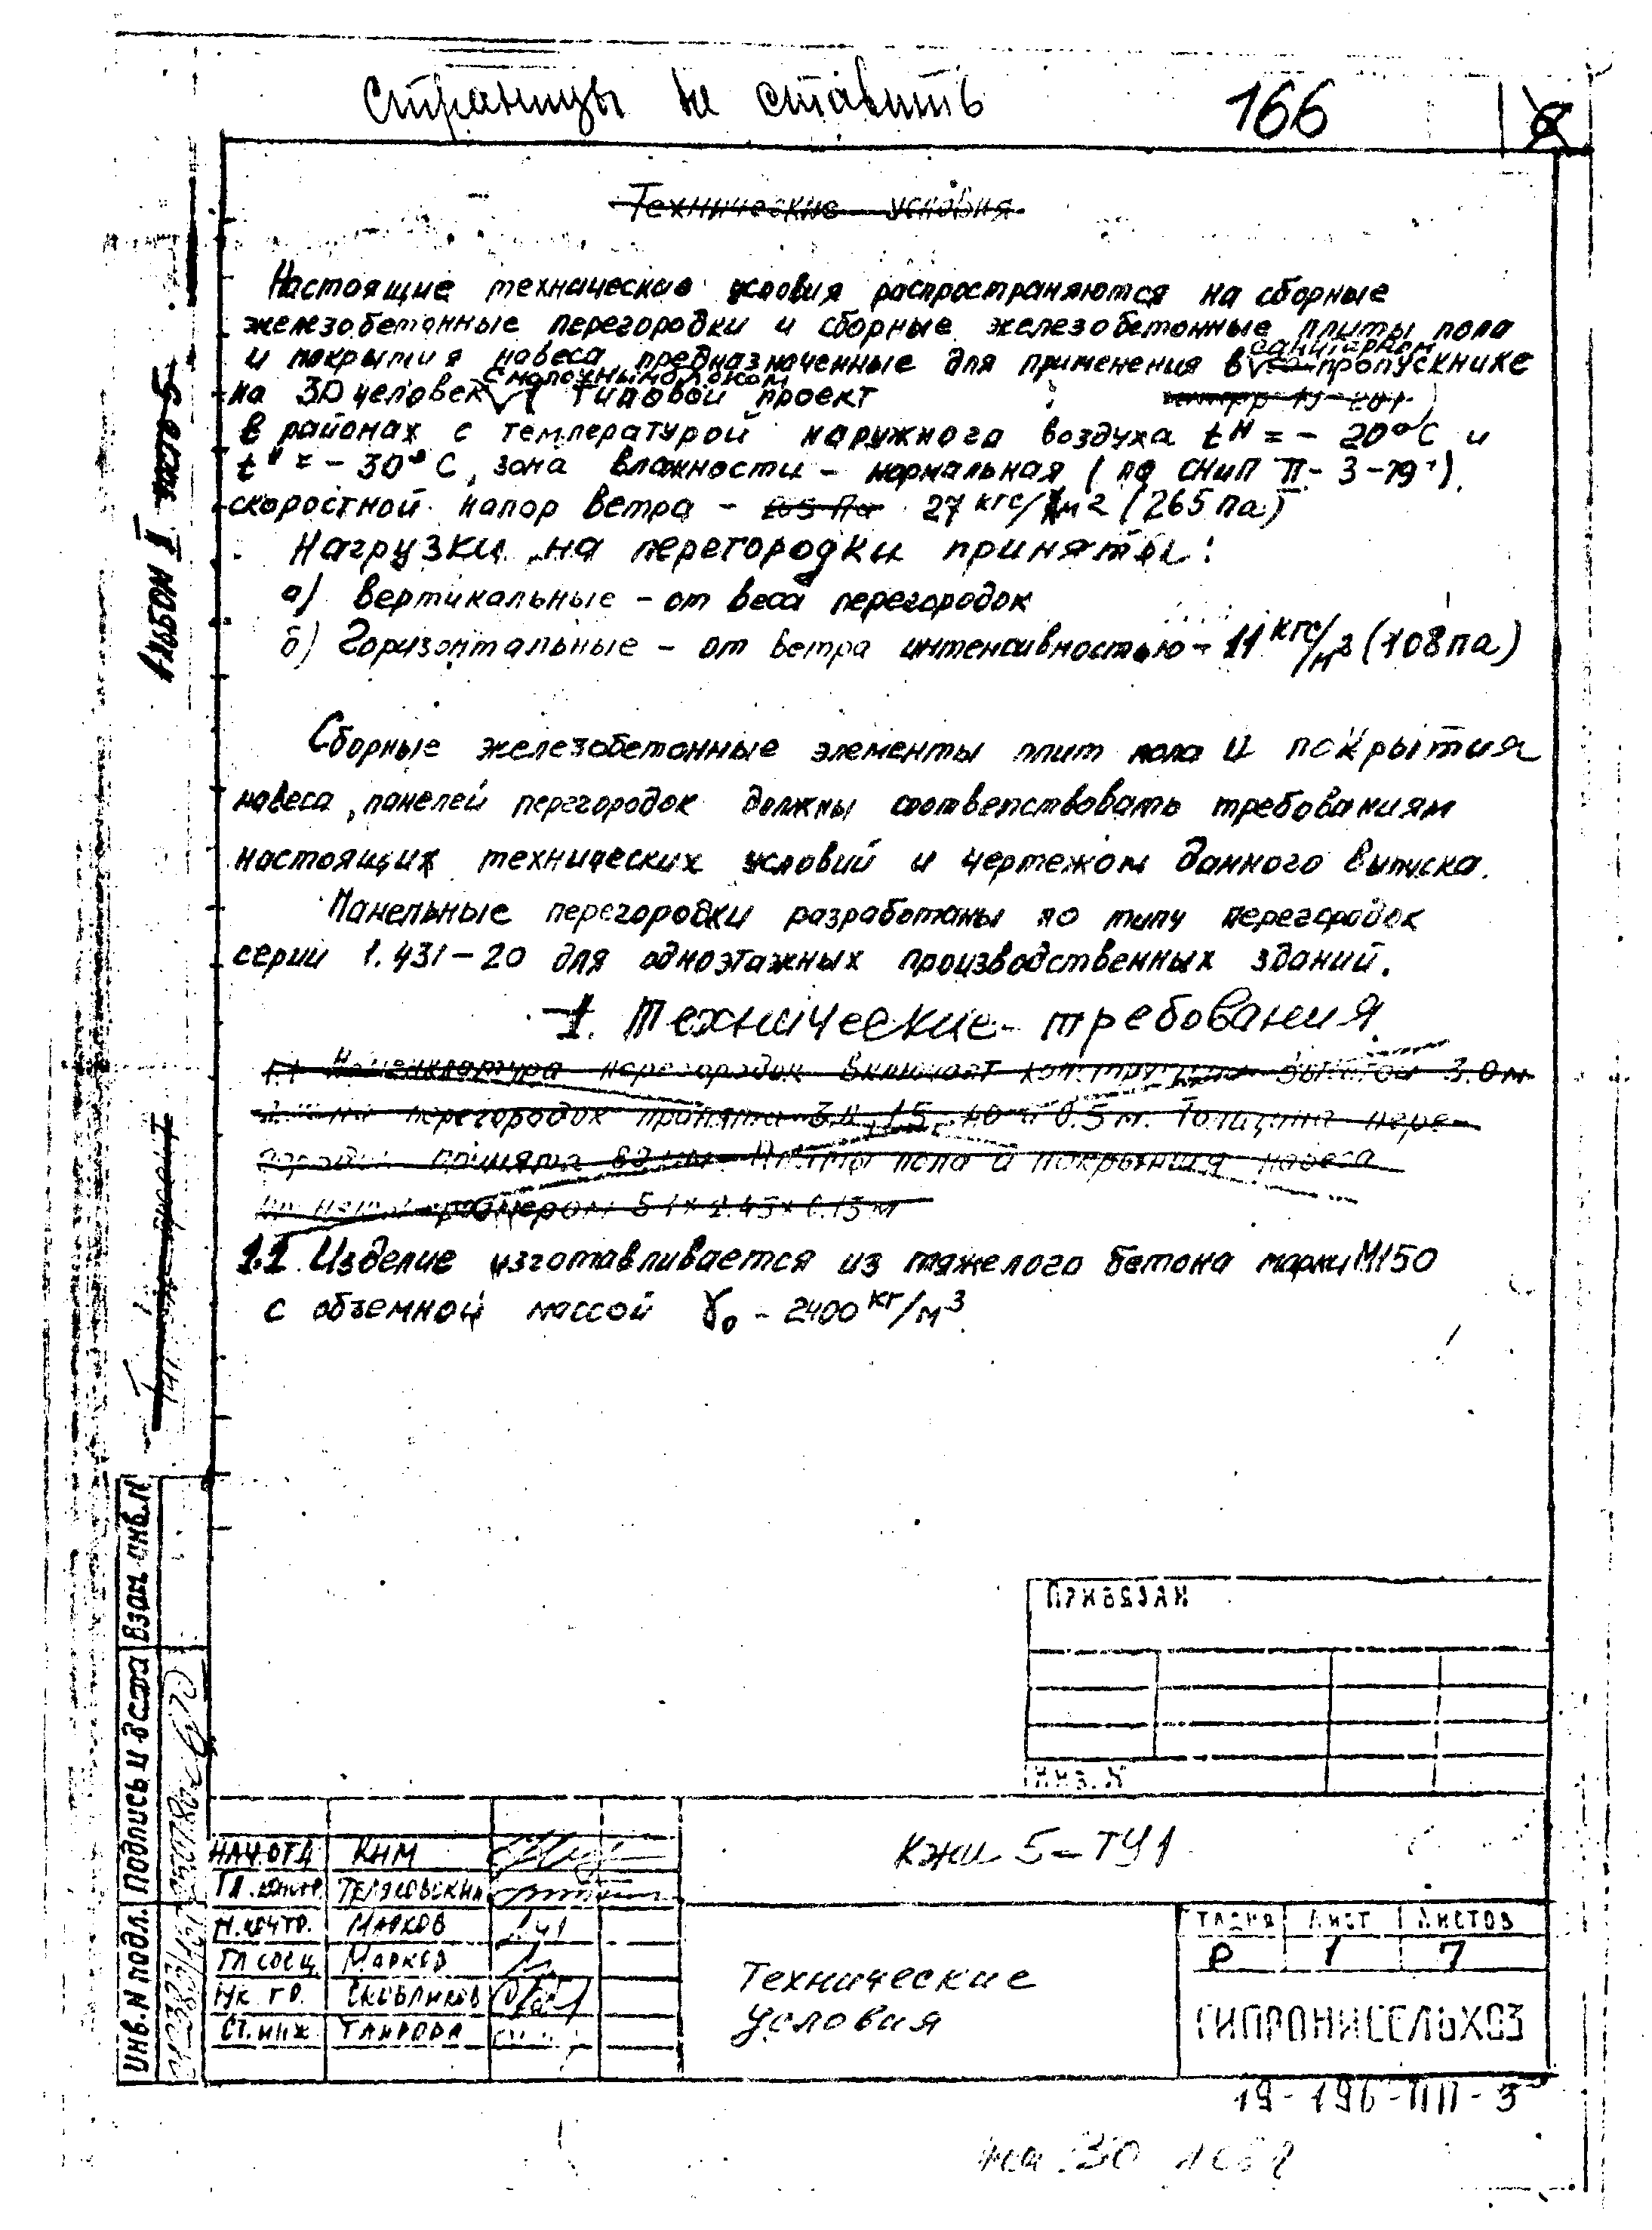 Страницы не ставить
166
Технические условия
Настоящие технические условия распространяются на сборные
железобетонные перегородки и сборные железобетонные плиты пола
и покрытия навеса, предназначенные для применения в санитарном пропускнике
на 30 человек с молочным блоком Типовой проект
в районах с температурой наружного воздуха tн = - 20°С и
tн = - 30°С, зона влажности – нормальная (по СНиП II-3-79)
скоростной напор ветра – 265 Па 27 кгс/м2 (265 Па)
Нагрузки на перегородки приняты:
а) вертикальные – от веса перегородок
б) Горизонтальные – от ветра интенсивностью – 11 кгс/м2 (108 Па)
Сборные железобетонные элементы плит пола и покрытия
навеса, панелей перегородок должны соответствовать требованиям
настоящих технических условий и чертежом данного выпуска.
Панельные перегородки разработаны по типу перегородок
серии 1.431-20 для одноэтажных производственных зданий.
1. Технические требования
1.1 Номенклатура перегородок включает высотой 3.0м
перегородок принята 3.0, 1.5, 1.0 и 0.5 м. Толщина пере-
городки принята 80 мм. Плиты пола и покрытия навеса
размером
1.1 Изделие изготавливается из тяжелого бетона марки М150
с объемной массой γ0 – 2400 кг/м3
Альбом I часть 5
Взам. инв. N
Подпись и дата
Инв. N подл.
Привязан
Инв. N
Нач.отд Ким
Гл. констр. Теляковский
Н.контр. Марков
Гл спец. Марков
Рук. гр. Скобликов
Ст. инж. Таирова
КЖИ 5-ТУ1
Технические
условия
Стадия Лист Листов
Р 1 7
ГИПРОНИСЕЛЬХОЗ
19-196-ПП-3
на 30